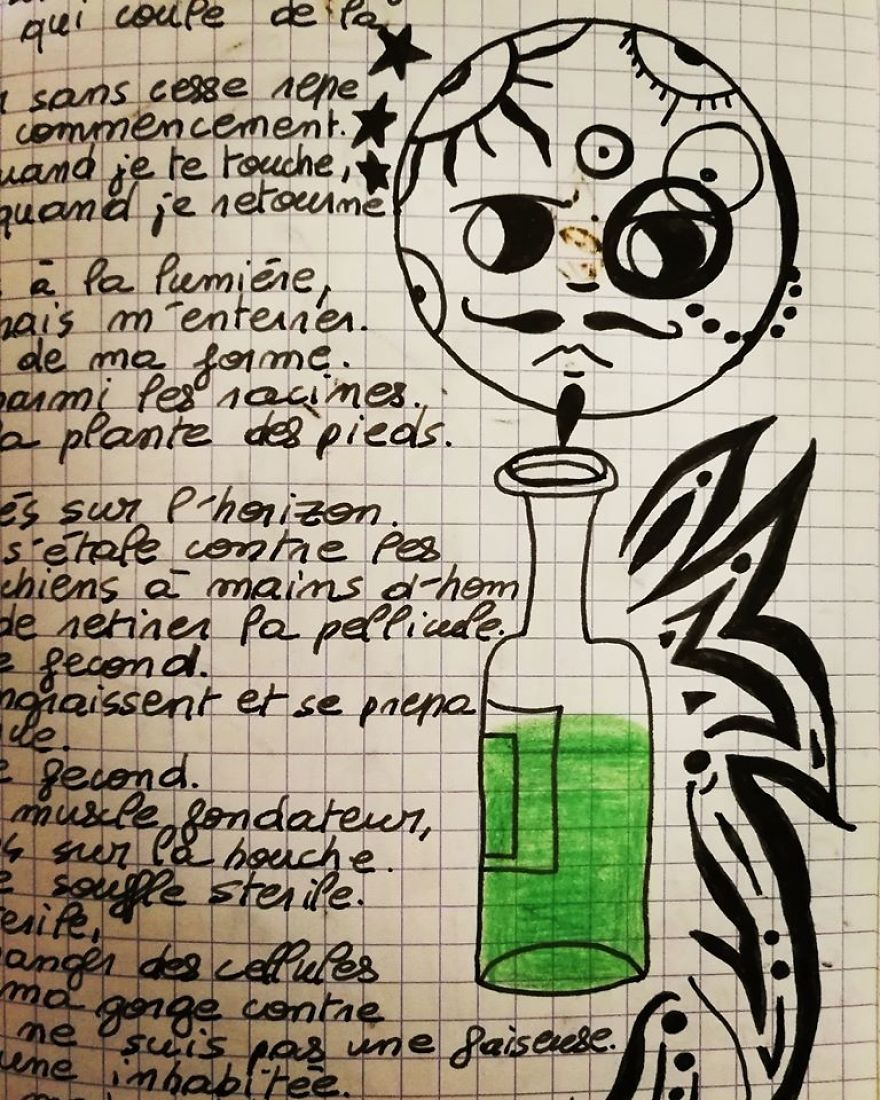 qui coupe de la
sans cesse repe
commencement.
uand je te touche,
quand je retourne
à la lumiére,
mais m'enterrer.
de ma forme.
parmi les racimes.
a plante des pieds.
és sur l'horizon.
s'étale contre les
chiens à mains d'hom
de retirer la pellicule.
e fecond.
ngraissent et se prepa
ue.
e fecond.
muscle fondateur,
s sur la bouche.
e souffle sterile.
terile,
anger des cellules
ma gorge contre
ne suis pas une faiseuse.
une inhabitée.